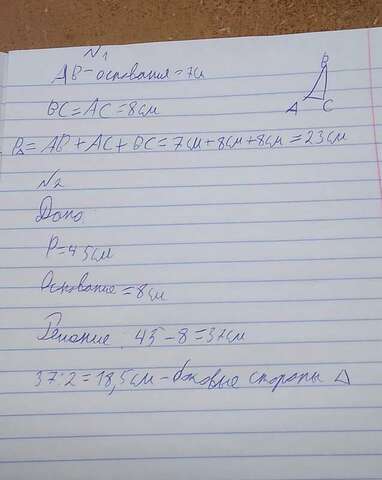 N1
AB - основания = 7см
BC = AC = 8см
B
A
C
P△ = AB + AC + BC = 7см + 8см + 8см = 23см
N2
Дано
P = 45см
Основание = 8см
Решение: 45 - 8 = 37см
37:2 = 18,5см - боковые стороны △